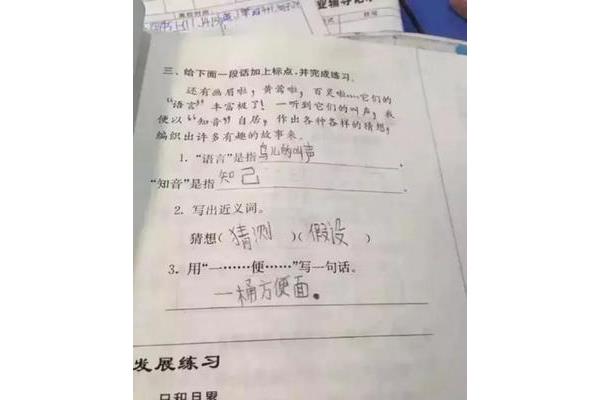 三、给下面一段话加上标点,并完成练习。
还有画眉啦,黄莺啦,百灵啦……它们的
“语言”丰富极了!一听到它们的叫声,我
便以“知音”自居,作出各种各样的猜想,
编织出许多有趣的故事来。
1. “语言”是指鸟儿的叫声。
“知音”是指知己。
2. 写出近义词。
猜想(猜测)(假设)
3. 用“一……便……”写一句话。
一桶方便面。
发展练习
日积月累